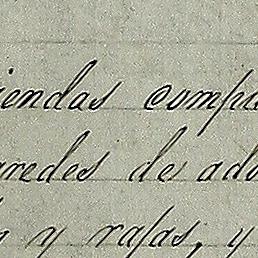 iendas compu
aredes de ado
y rajas, y